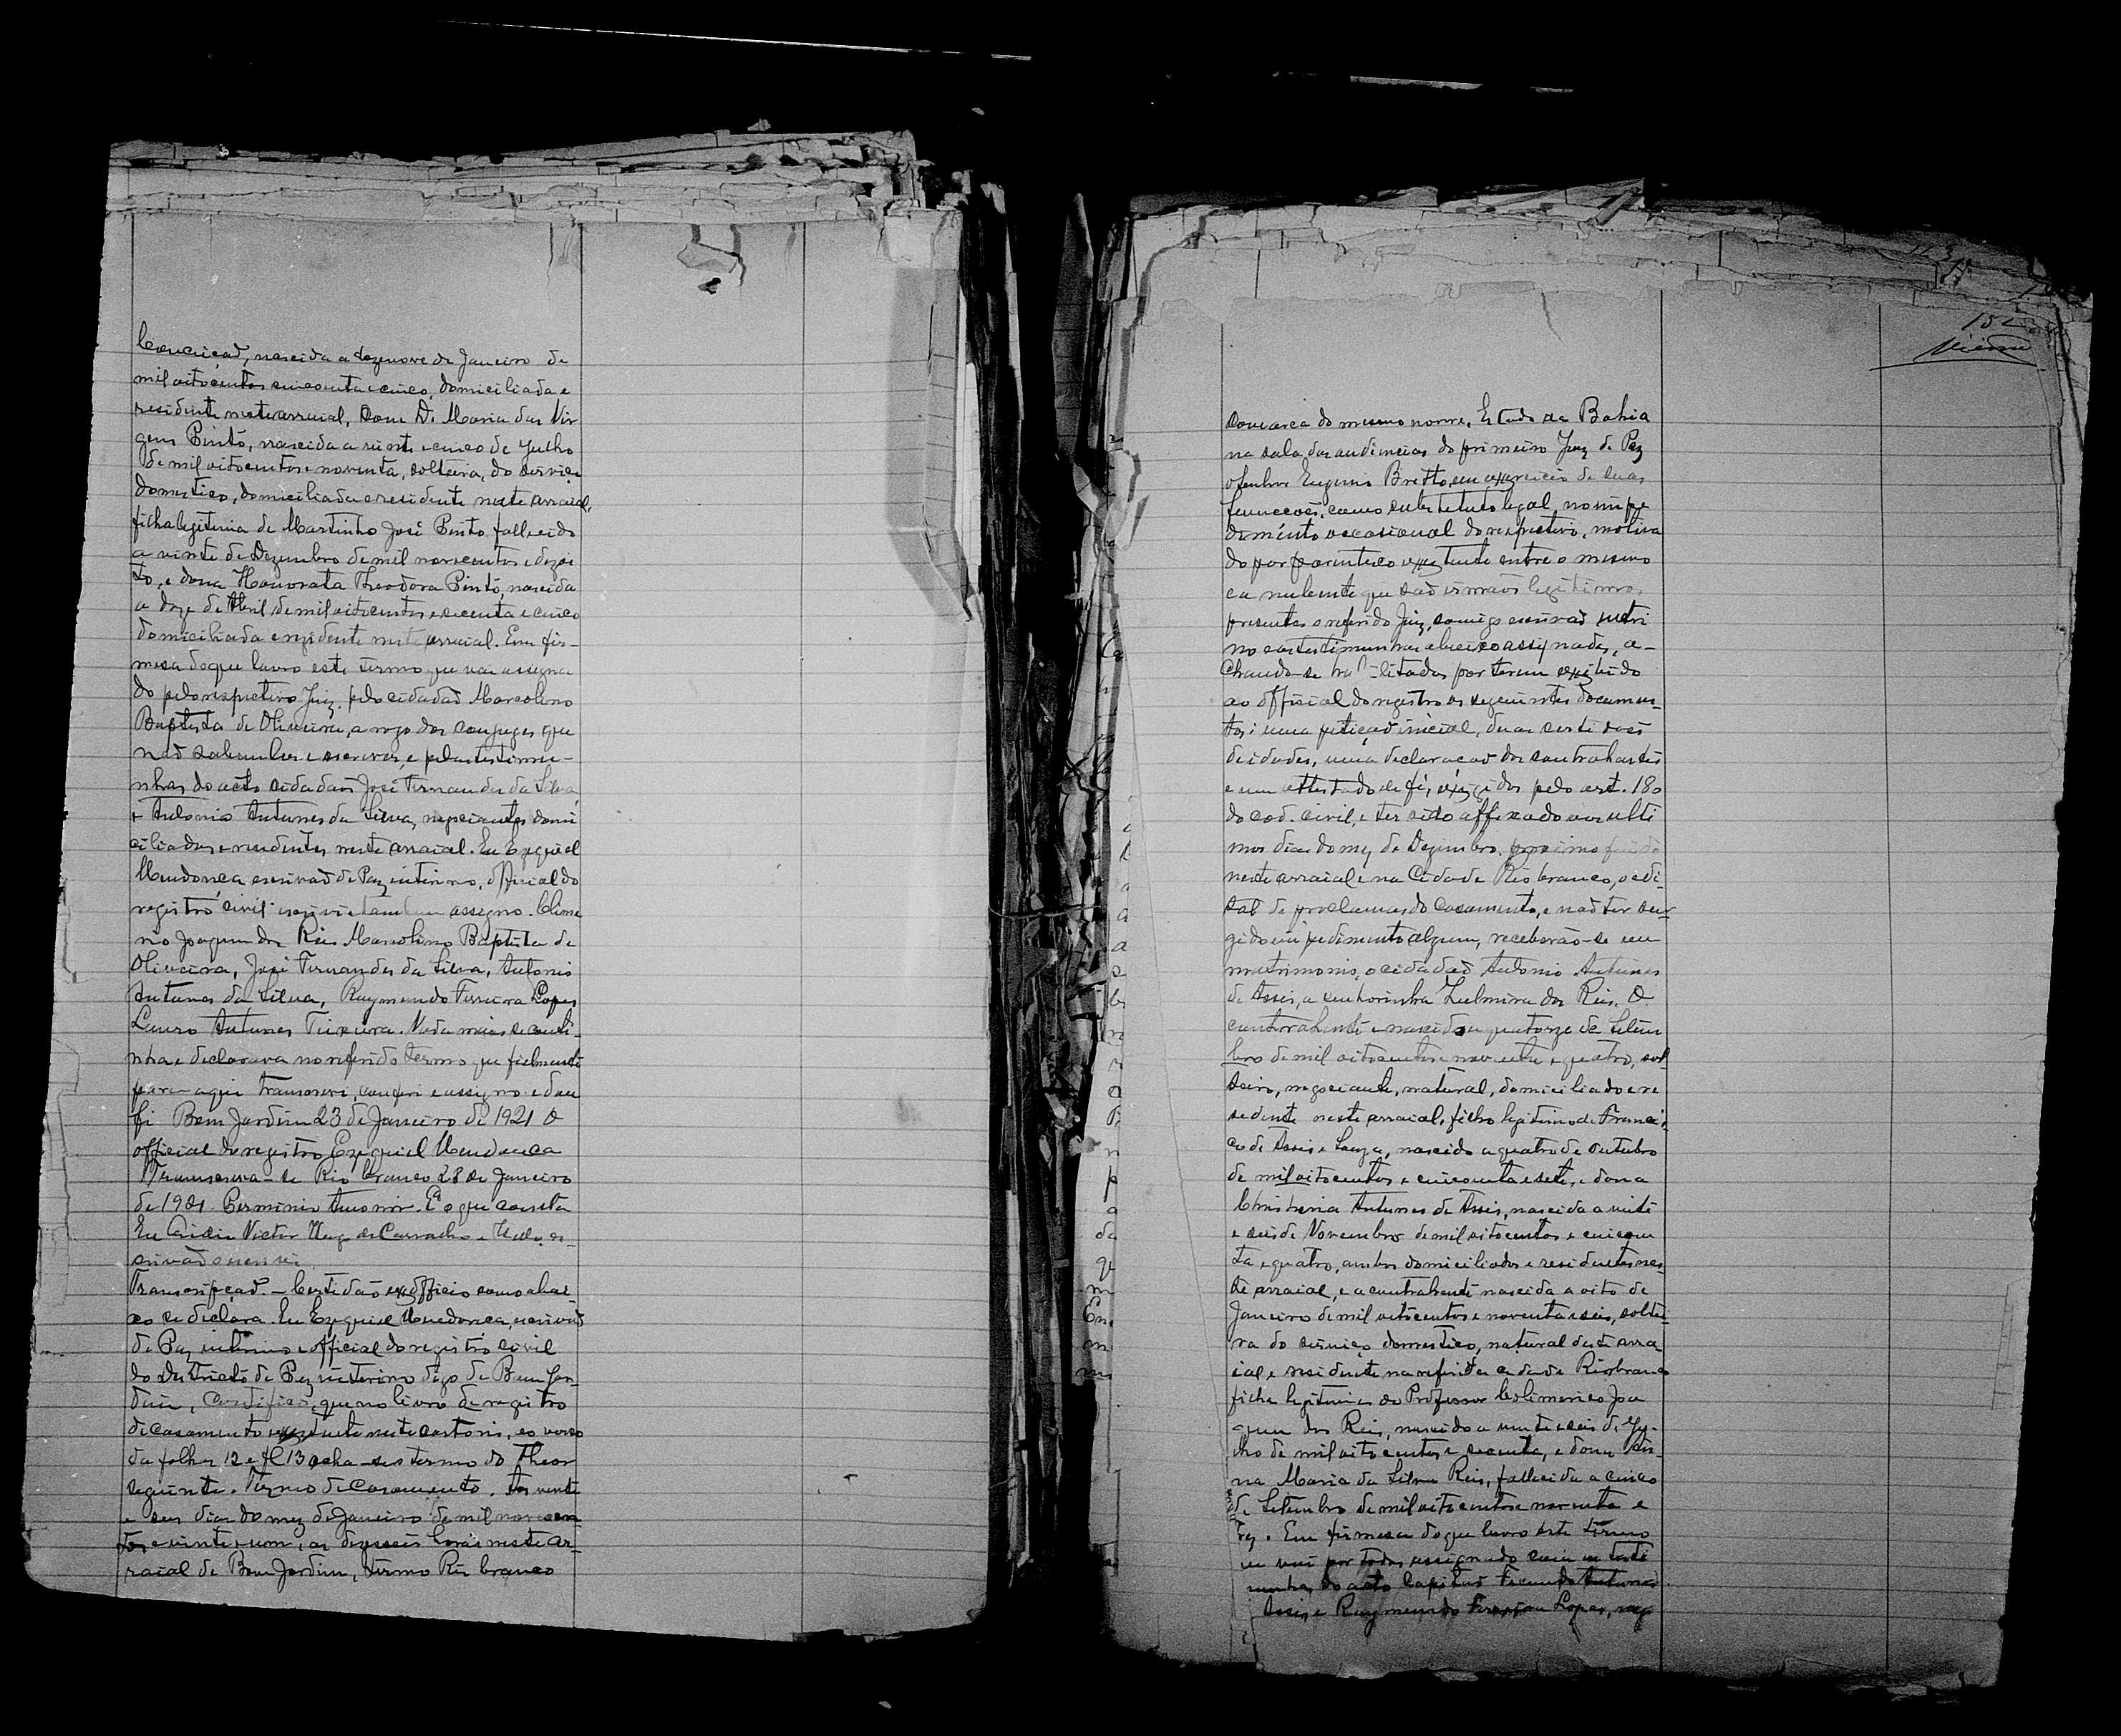 Conceição, nascida a dezenove de Janeiro de
mil oitocentos cincoenta e cinco, domiciliada e
residente neste arraial, com D. Maria das Vir
gens Pinto, nascida a vinte e cinco de Julho
de mil oitocentos e noventa, solteira, do serviço
domestico, domiciliada e residente neste arraial,
filha legitima de Martinho José Pinto fallecido
a vinte de Dezembro de mil novecentos e dezoi
to, e dona Honorata Theodora Pinto, nascida
a doze de Abril de mil oitocentos e secenta e cinco
domiciliada e rezidente neste arraial. Em fir-
mesa do que lavro este termo que vai assigna
do pelo respectivo Juiz, pelo cidadão Marcolino
Baptista de Oliveira, a rogo dos conjuges que
não sabem ler e escrever, e pelas testimu-
nhas do acto cidadãos José Fernandes da Silva
e Antonio Antunes da Silva, negociantes domi
ciliados e residentes neste arraial. Eu Ezequiel
Mendonça escrivão de Paz interino, official do
registro civil escrevi e tambem assigno.
rio Joaquim dos Reis Marcolino Baptista de
Oliveira, José Fernandes da Silva, Antonio
Antunes da Silva, Raymundo Ferreira Lopes
Lauro Antunes Teixeira. Nada mais se conti-
nha e declarava no referido termo que fielmente
para aqui transcrevi, conferi e assigno e dou
fé Bom Jardim 23 de Janeiro de 1921 O
official do registro Ezequiel Mendonca
Transcreva-se Rio branco 28 de Janeiro
de 1921. E o que consta
Eu Victor Hugo de Carvalho es-
crivão escrevi
Transcripçaõ. - Certidão ex officio como abai-
xo se declara. Eu Ezequiel Mendonca, escrivaõ
de Paz interino e official do registro civil
do Districto de Paz interino digo de Bom Jar-
dim, Certifico, que no livro de registro
de casamento existente neste cartorio, ao verso
da folha 12 e fl 13 acha-se o termo do Theor
seguinte. Termo de Casamento. Aos vinte
e seis dias do mez de Janeiro de mil novecen
tos e vinte e um, as dezesseis horas neste ar-
raial de Bom Jardim, termo Rio branco
152
comarca do mesmo nome, Estado da Bahia
na sala das audiencias do primeiro Juiz de Paz
o senhor Eugenio Britto, em exercicio de suas
funccoes, como substituto legal, no impe
dimento occasional do respectivo, motiva
do por parentesco existente entre o mesmo
e a nubente que saõ irmaõs legitimos,
presentes o referido Juiz, comigo escrivaõ interi
no e as testimunhas abaixo assignadas, a-
chando-se habilitados por terem exibido
ao official do registro os seguintes documen-
tos: uma petiçaõ inicial, duas certidoes
de idades, uma declaracaõ dos contrahentes
e um attestado de fé, exigidos pelo art. 180
do cod. civil, e ter sido affixado aos ulti
mos dias do mez de Dezembro proximo findo
neste arraial e na Cidade Rio branco, o edi-
tal de proclamas do casamento, e naõ ter sur
gido impedimento algum, receberão-se em
matrimonio, o cidadaõ Antonio Antunes
de Assis, a senhorinha Zulmira dos Reis. O
contrahente é nascido a quatorze de Setem
bro de mil oitocentos e noventa e quatro, sol
teiro, negociante, natural, domiciliado e re
sidente neste arraial, filho legitimo de Francis
co de Assis e Souza, nascido a quatro de Outubro
de mil oitocentos e cincoenta e sete, e dona
Antunes de Assis, nascida a vinte
e seis de Novembro de mil oitocentos e cincoen
ta e quatro, ambos domiciliados e residentes nes-
te arraial, e a contrahente nascida a oito de
Janeiro de mil oitocentos e noventa e seis, soltei-
ra do serviço domestico, natural deste arra
ial e residente na referida cidade Rio branco
filha legitima do Professor Joa
quim dos Reis, nascido a vinte e seis de Ju-
lho de mil oitocentos e secenta, e dona An
na Maria da Silva Reis, fallecida a cinco
de Setembro de mil oitocentos e noventa e
trez. Em firmesa do que lavro este termo
que vai por todos assignado com as testi
munhas do acto Capitaõ Antunes
Assis e Raymundo Ferreira Lopes, neg